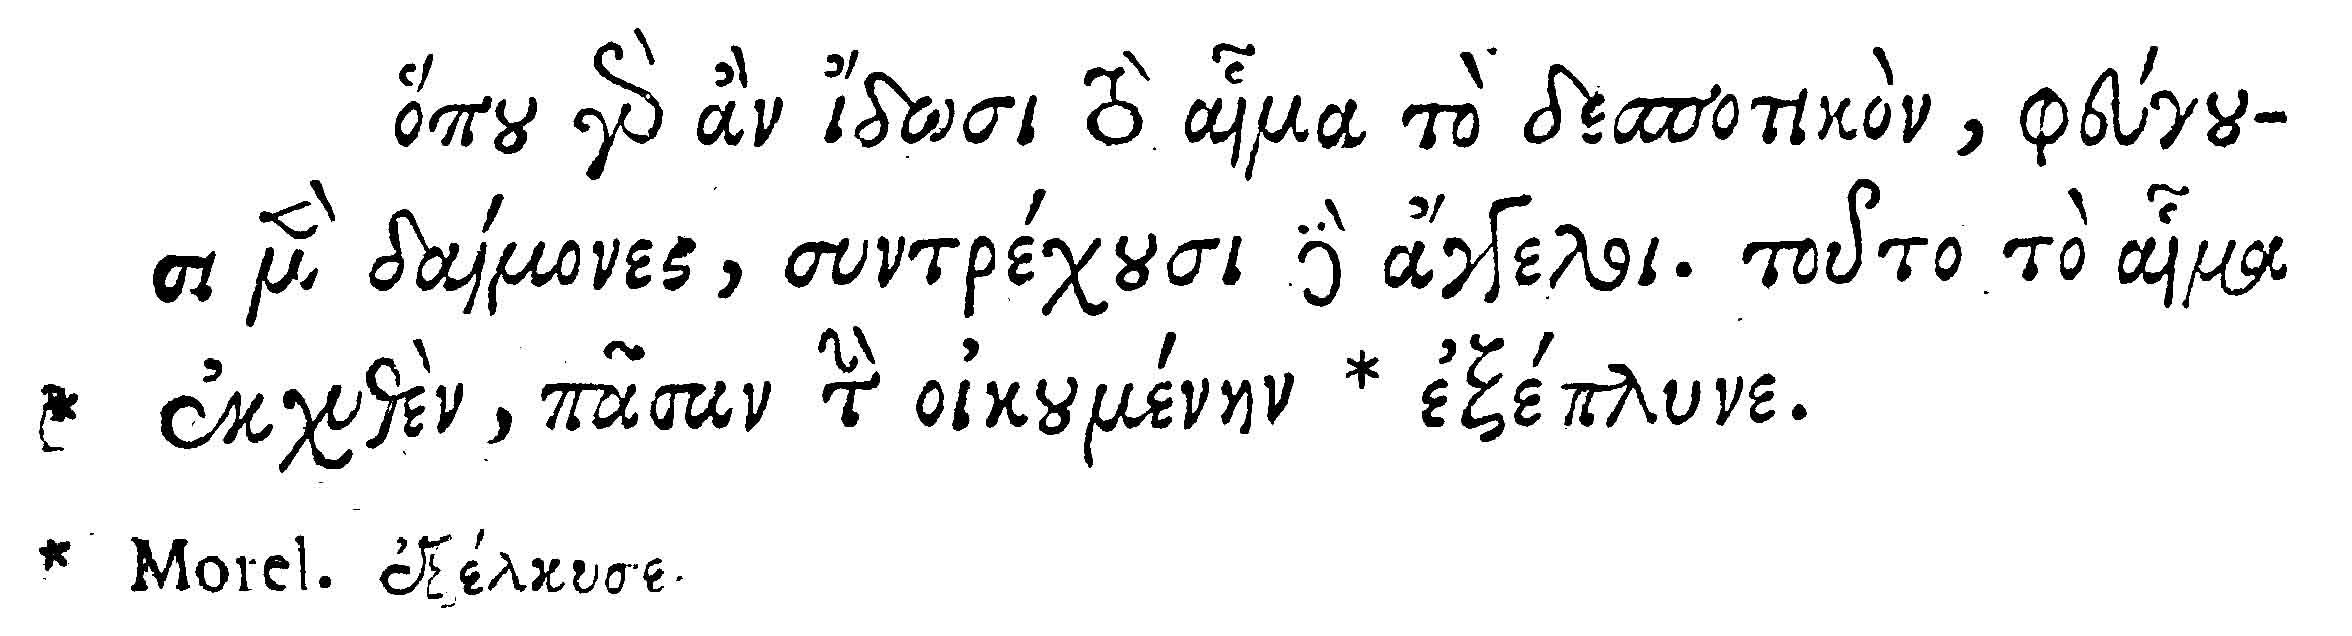 ὅπου γὰρ ἂν ἴδωσι τὸ αἷμα τὸ δεσποτικὸν, φεύγου-
σι μὲν δαίμονες, συντρέχουσι δὲ ἄγγελοι. τοῦτο τὸ αἷμα
* ἐκχυθὲν, πᾶσαν τὴν οἰκουμένην * ἐξέπλυνε.
* Morel. ἐξέλκυσε.